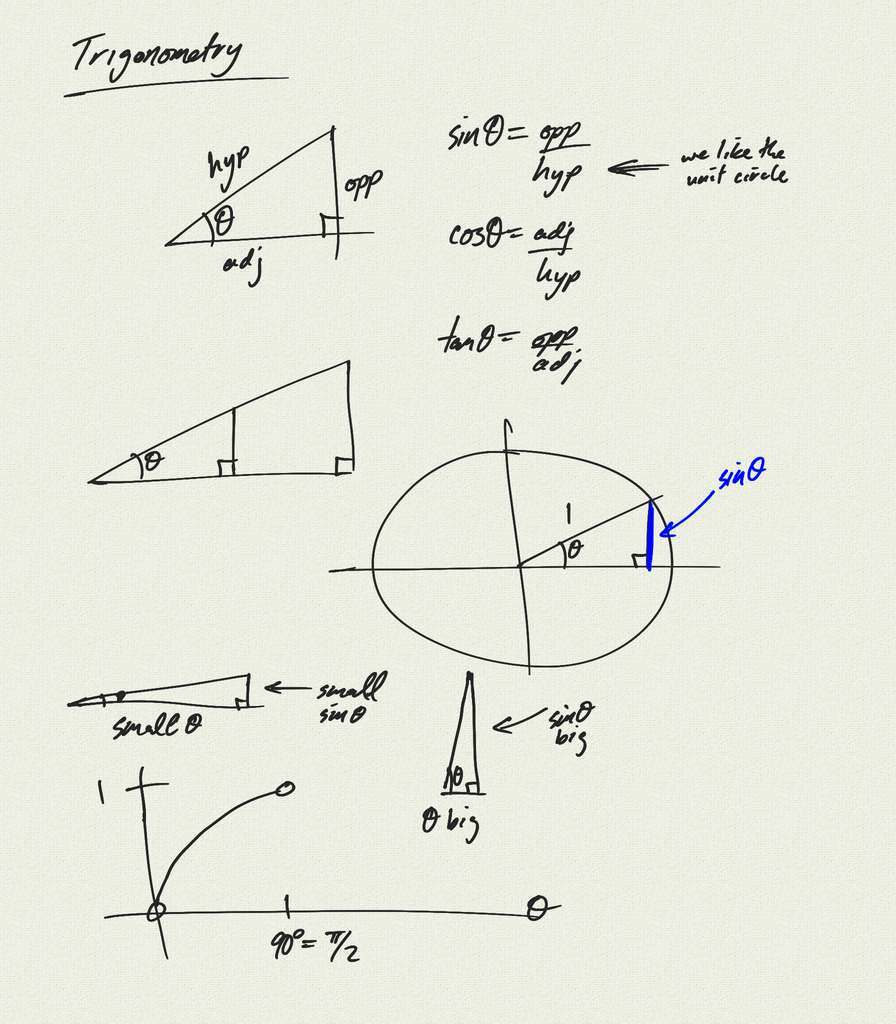 Trigonometry
hyp
opp
θ
adj
sinθ = opp
hyp
we like the
unit circle
cosθ = adj
hyp
tanθ = opp
adj
θ
sinθ
1
θ
small
sinθ
small θ
sinθ
big
θ
θ big
1
θ
90° = π/2